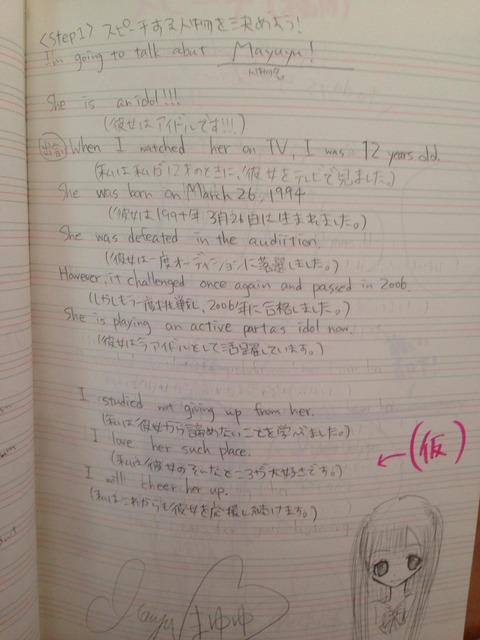 <Step1> スピーチする人物を決めよう!
I'm going to talk about Mayuyu!
人物名
She is an idol!!!
(彼女はアイドルです!!!)
出会 When I watched her on TV, I was 12 years old.
(私は私が12才のときに、彼女をテレビで見ました。)
She was born on March 26, 1994
(彼女は1994年3月26日に生まれました。)
She was defeated in the audiition.
(彼女は一度オーディションに落選しました。)
However, it challenged once again and passed in 2006.
(しかしもう一度挑戦し、2006年に合格しました。)
She is playing an active part as idol now.
(彼女は今アイドルとして活躍しています。)
I studied not giving up from her.
(私は彼女から諦めないことを学びました。)
I love her such place.
(私は彼女のそんなところが大好きです。)
←(仮)
I will cheer her up.
(私はこれからも彼女を応援し続けます。)
まゆゆ